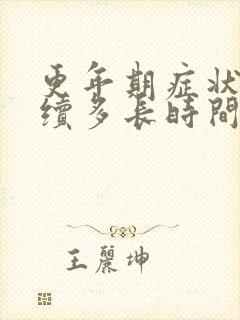 更年期症狀
續多長時間
王麗坤